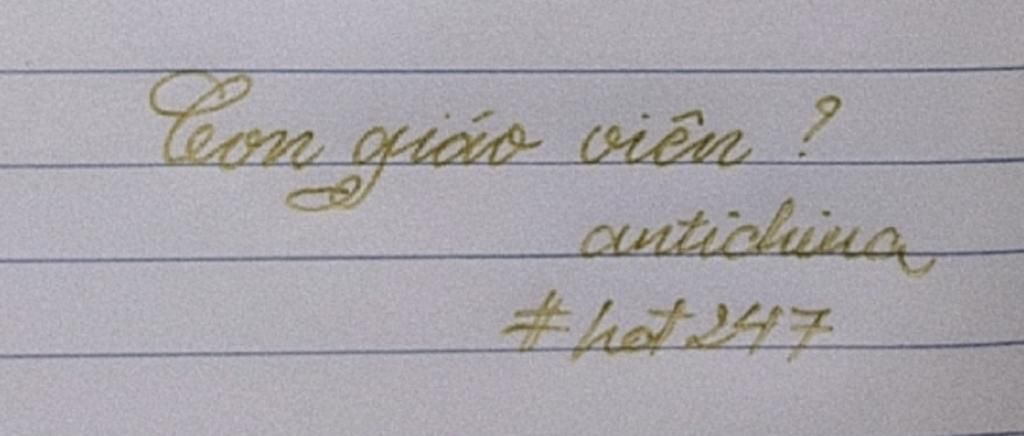 Con giáo viên ?
antichina
#hot247